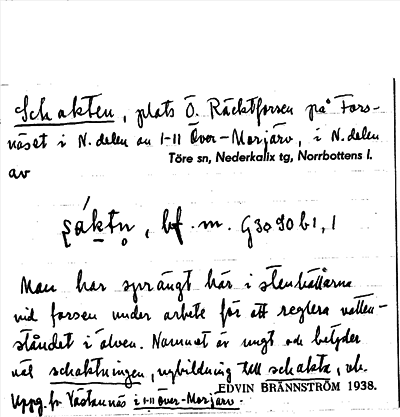 Schakten, plats Ö. Räcktforsen på Fors-
näset i N. delen av 1-11 Över-Morjärv, i N. delen
Töre sn, Nederkalix tg, Norrbottens l.
av
bf. m. G3090b1,1
Man har sprängt här i stenhällarna
vid forsen under arbete för att reglera vatten-
ståndet i älven. Namnet är ungt och betyder
väl schaktningen, nybildning till schakta, vb.
Uppg. fr. Västannäs i 1-11 Över-Morjärv.
EDVIN BRÄNNSTRÖM 1938.